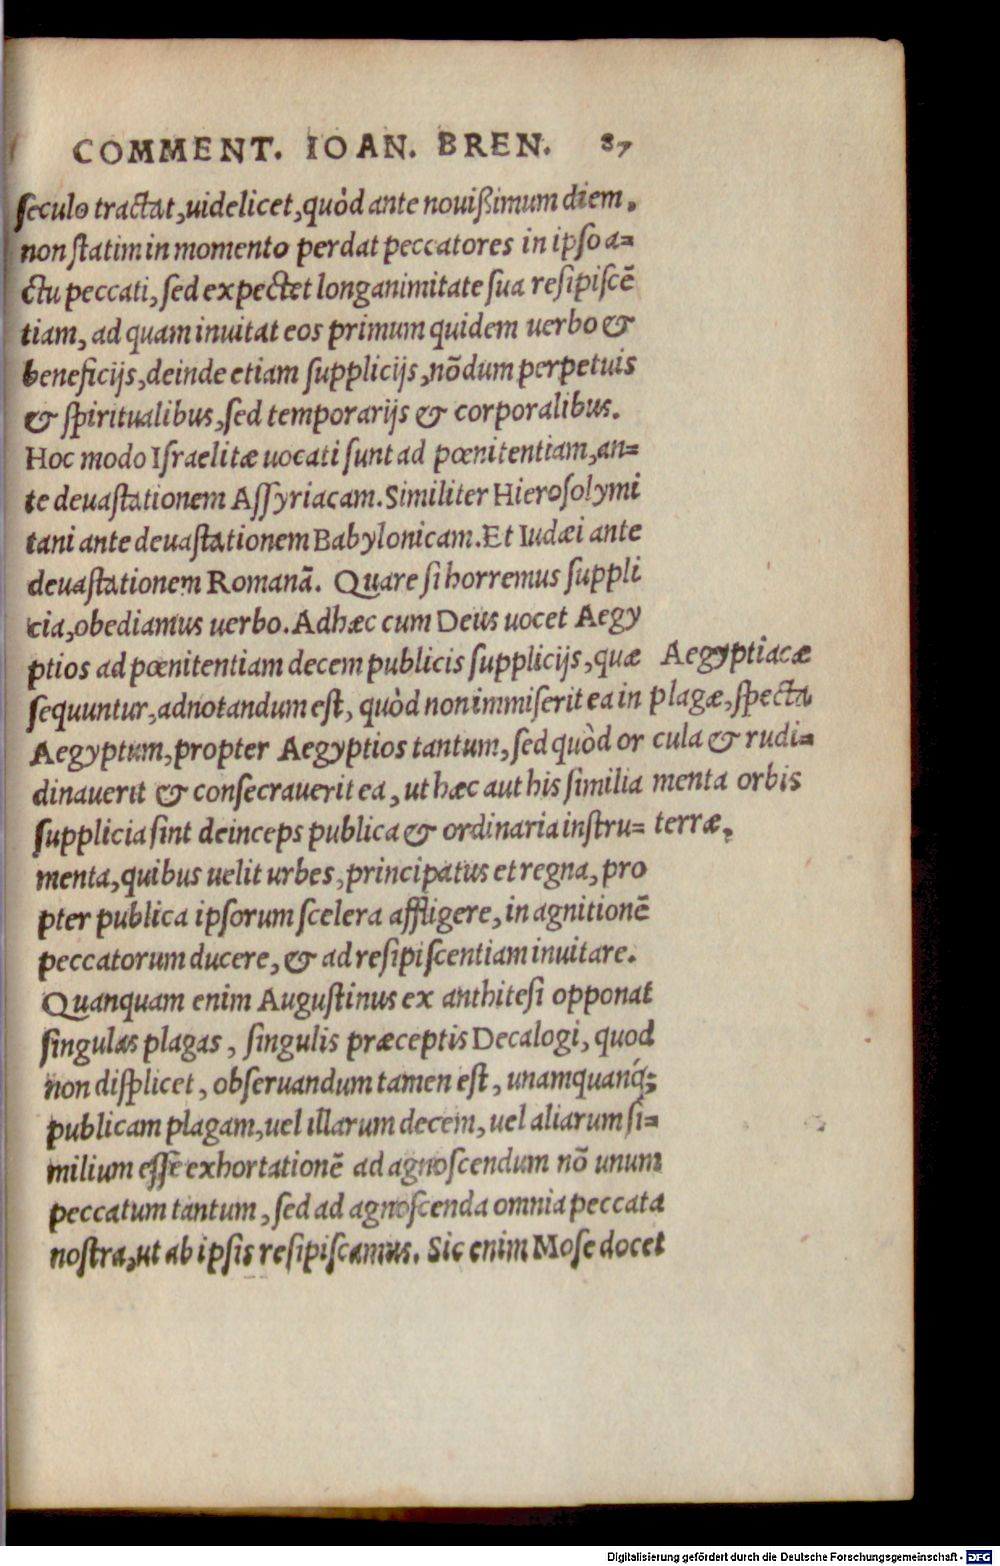 COMMENT. IOAN. BREN. 87
ſeculo tractat, uidelicet, quòd ante nouißimum diem,
non ſtatim in momento perdat peccatores in ipſo a=
ctu peccati, ſed expectet longanimitate ſua reſipiſcẽ
tiam, ad quam inuitat eos primum quidem uerbo &
beneficijs, deinde etiam ſupplicijs, nõdum perpetuis
& ſpiritualibus, ſed temporarijs & corporalibus.
Hoc modo Iſraelitæ uocati ſunt ad pœnitentiam, an=
te deuaſtationem Aſſyriacam. Similiter Hieroſolymi
tani ante deuaſtationem Babylonicam. Et Iudæi ante
deuaſtationem Romanã. Quare ſi horremus ſuppli
cia, obediamus uerbo. Adhæc cum Deus uocet Aegy
ptios ad pœnitentiam decem publicis ſupplicijs, quæ
ſequuntur, adnotandum eſt, quòd non immiſerit ea in
Aegyptum, propter Aegyptios tantum, ſed quòd or
dinauerit & conſecrauerit ea, ut hæc aut his ſimilia
ſupplicia ſint deinceps publica & ordinaria inſtru=
menta, quibus uelit urbes, principatus et regna, pro
pter publica ipſorum ſcelera affligere, in agnitionẽ
peccatorum ducere, & ad reſipiſcentiam inuitare.
Quanquam enim Auguſtinus ex anthiteſi opponat
ſingulas plagas, ſingulis præceptis Decalogi, quod
non diſplicet, obſeruandum tamen eſt, unamquanq́;
publicam plagam, uel illarum decem, uel aliarum ſi=
milium eſſe exhortationẽ ad agnoſcendum nõ unum
peccatum tantum, ſed ad agnoſcenda omnia peccata
noſtra, ut ab ipſis reſipiſcamus. Sic enim Moſe docet
Aegyptiacæ
plagæ, ſpecta
cula & rudi=
menta orbis
terræ.
Digitalisierung gefördert durch die Deutsche Forschungsgemeinschaft - DFG